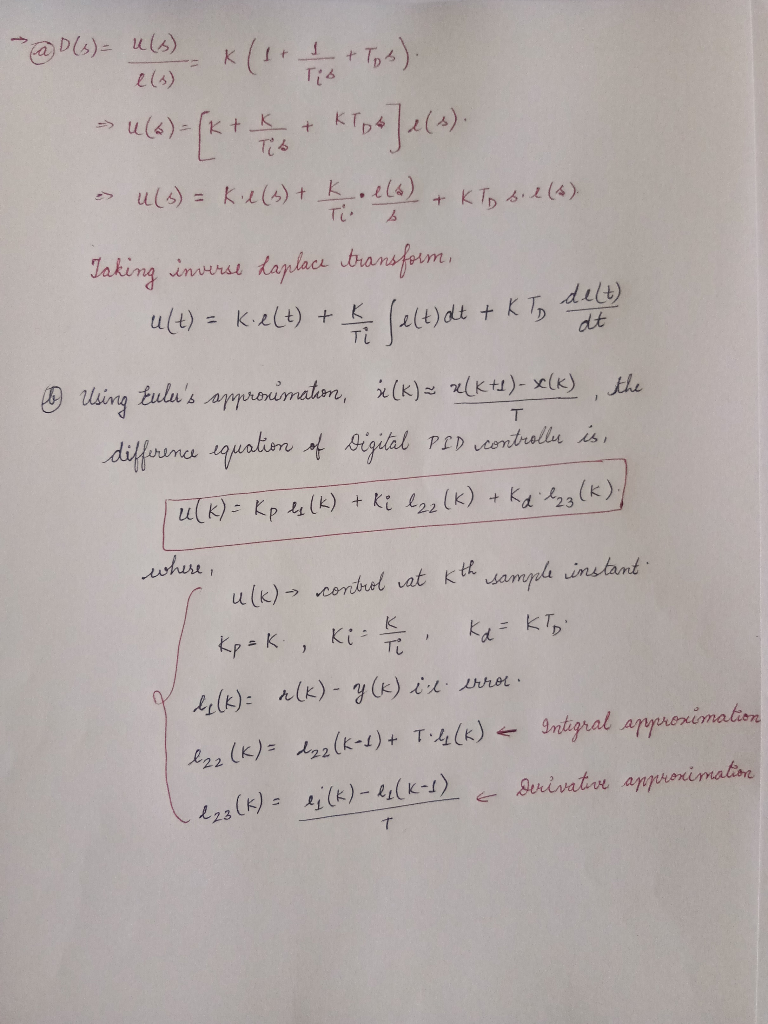 → ⓐ D(s) = u(s)/e(s) = K (1 + 1/(Tᵢs) + T_D s).
⇒ u(s) = [K + K/(Tᵢs) + KT_D s] e(s).
⇒ u(s) = K·e(s) + K/Tᵢ · e(s)/s + KT_D s·e(s).
Taking inverse Laplace transform,
u(t) = K·e(t) + K/Tᵢ ∫e(t)dt + KT_D de(t)/dt
ⓑ Using Euler's approximation, ẋ(K) ≈ (x(K+1) - x(K))/T, the
difference equation of Digital PID controller is,
u(K) = Kp e₁(K) + Ki e₂₂(K) + Kd·e₂₃(K).
where,
u(K) → control at Kth sample instant.
Kp = K, Ki = K/Tᵢ, Kd = KT_D.
e₁(K) = r(K) - y(K) i.e. error.
e₂₂(K) = e₂₂(K-1) + T·e₁(K) ← Integral approximation
e₂₃(K) = (e₁(K) - e₁(K-1))/T ← Derivative approximation